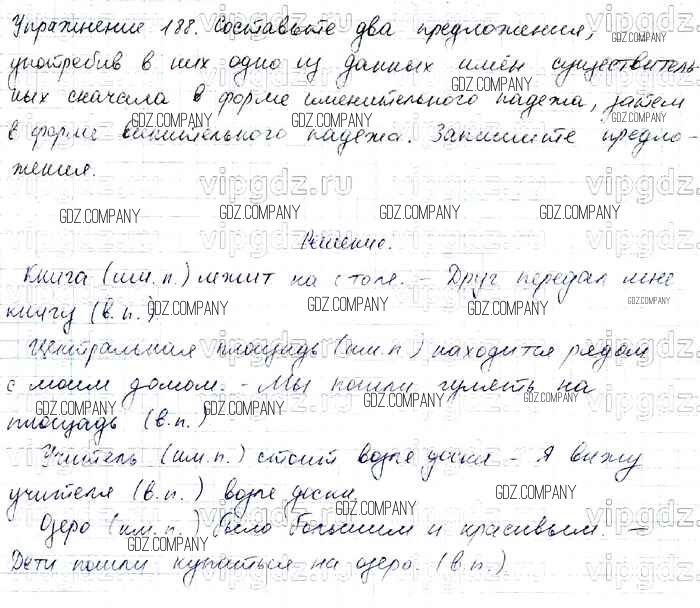 Упражнение 188. Составьте два предложения,
употребив в них одно из данных имён существитель-
ных сначала в форме именительного падежа, затем
в форме винительного падежа. Запишите предло-
жения.
Решение.
Книга (им.п.) лежит на столе. - Друг передал мне
книгу (в.п.).
Центральная площадь (им.п) находится рядом
с моим домом. - Мы пошли гулять на
площадь (в.п.)
Учитель (им.п.) стоит возле доски - Я вижу
учителя (в.п.) возле доски
Озеро (им.п.) было большим и красивым. -
Дети пошли купаться на озеро. (в.п.)
vipgdz.ru
GDZ.COMPANY